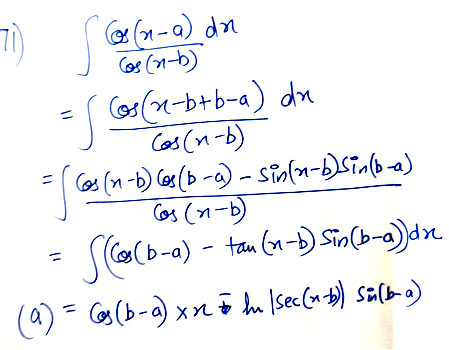 71) ∫ Cos(x-a) dx / Cos(x-b)
= ∫ Cos(x-b+b-a) dx / Cos(x-b)
= ∫ Cos(x-b) Cos(b-a) - Sin(x-b) Sin(b-a) / Cos(x-b)
= ∫ (Cos(b-a) - tan(x-b) Sin(b-a)) dx
(a) = Cos(b-a) × x - ln |sec(x-b)| Sin(b-a)